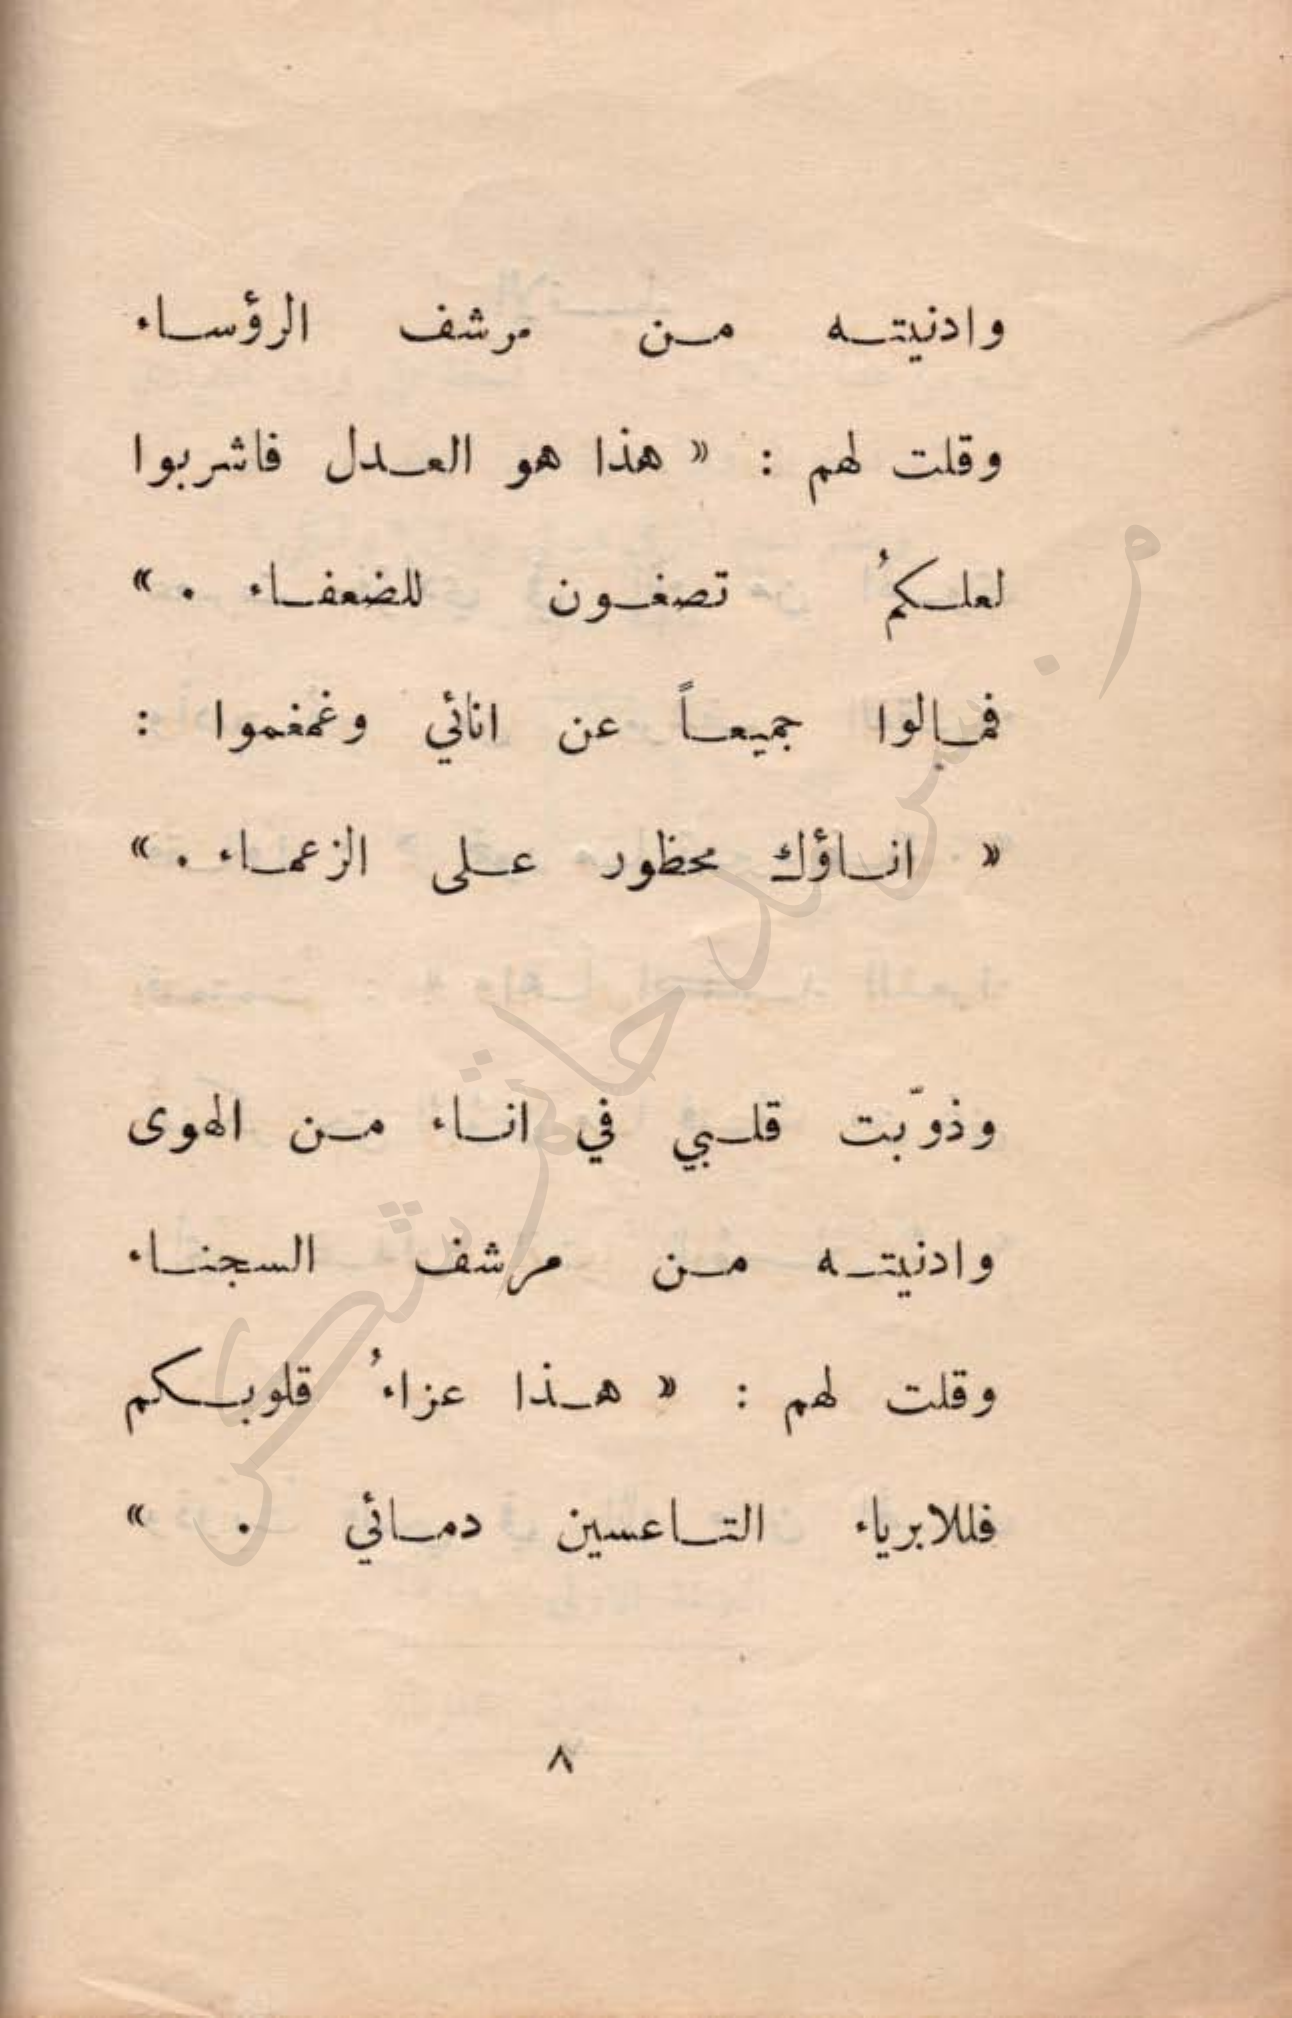 وادنيته من مرشف الرؤساء
وقلت لهم : « هذا هو العدل فاشربوا
لعلكمُ تصغون للضعفاء . »
فمالوا جميعاً عن انائي وغمغموا :
« اناؤك محظور على الزعماء . »
وذوّبت قلبي في اناء من الهوى
وادنيته من مرشف السجناء
وقلت لهم : « هذا عزاءُ قلوبكم
فللابرياء التاعسين دمائي . »
٨